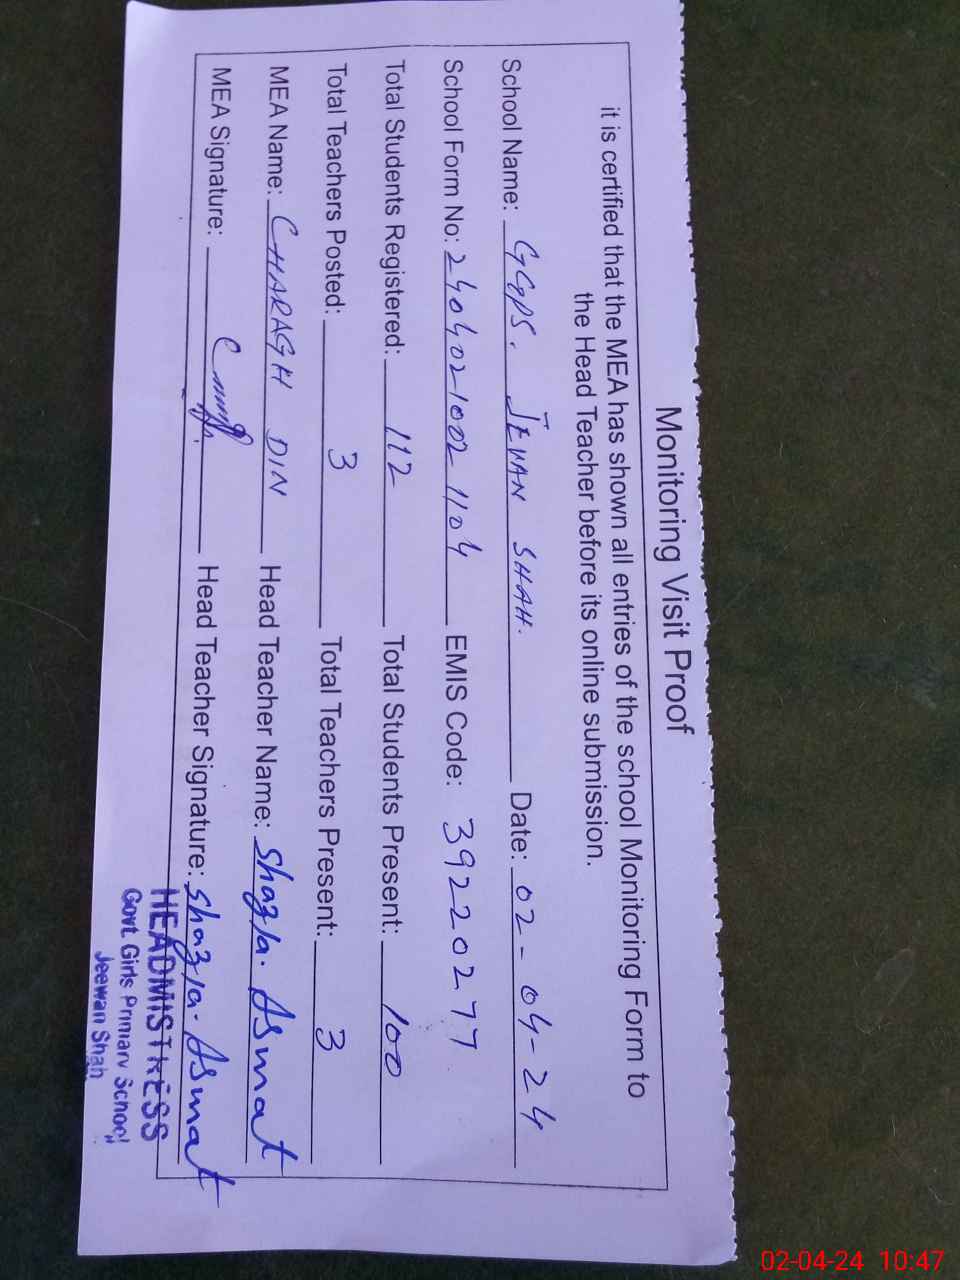 Monitoring Visit Proof
it is certified that the MEA has shown all entries of the school Monitoring Form to
the Head Teacher before its online submission.
School Name: GGPS. JEVAN SHAH. Date: 02-04-24
School Form No: 2404021002 1104 EMIS Code: 39220277
Total Students Registered: 112 Total Students Present: 100
Total Teachers Posted: 3 Total Teachers Present: 3
MEA Name: CHARAGH DIN Head Teacher Name: Shazia. Asmat
MEA Signature: Head Teacher Signature: Shazia. Asmat
HEADMISTRESS
Govt. Girls Primary School
Jeewan Shah
02-04-24 10:47